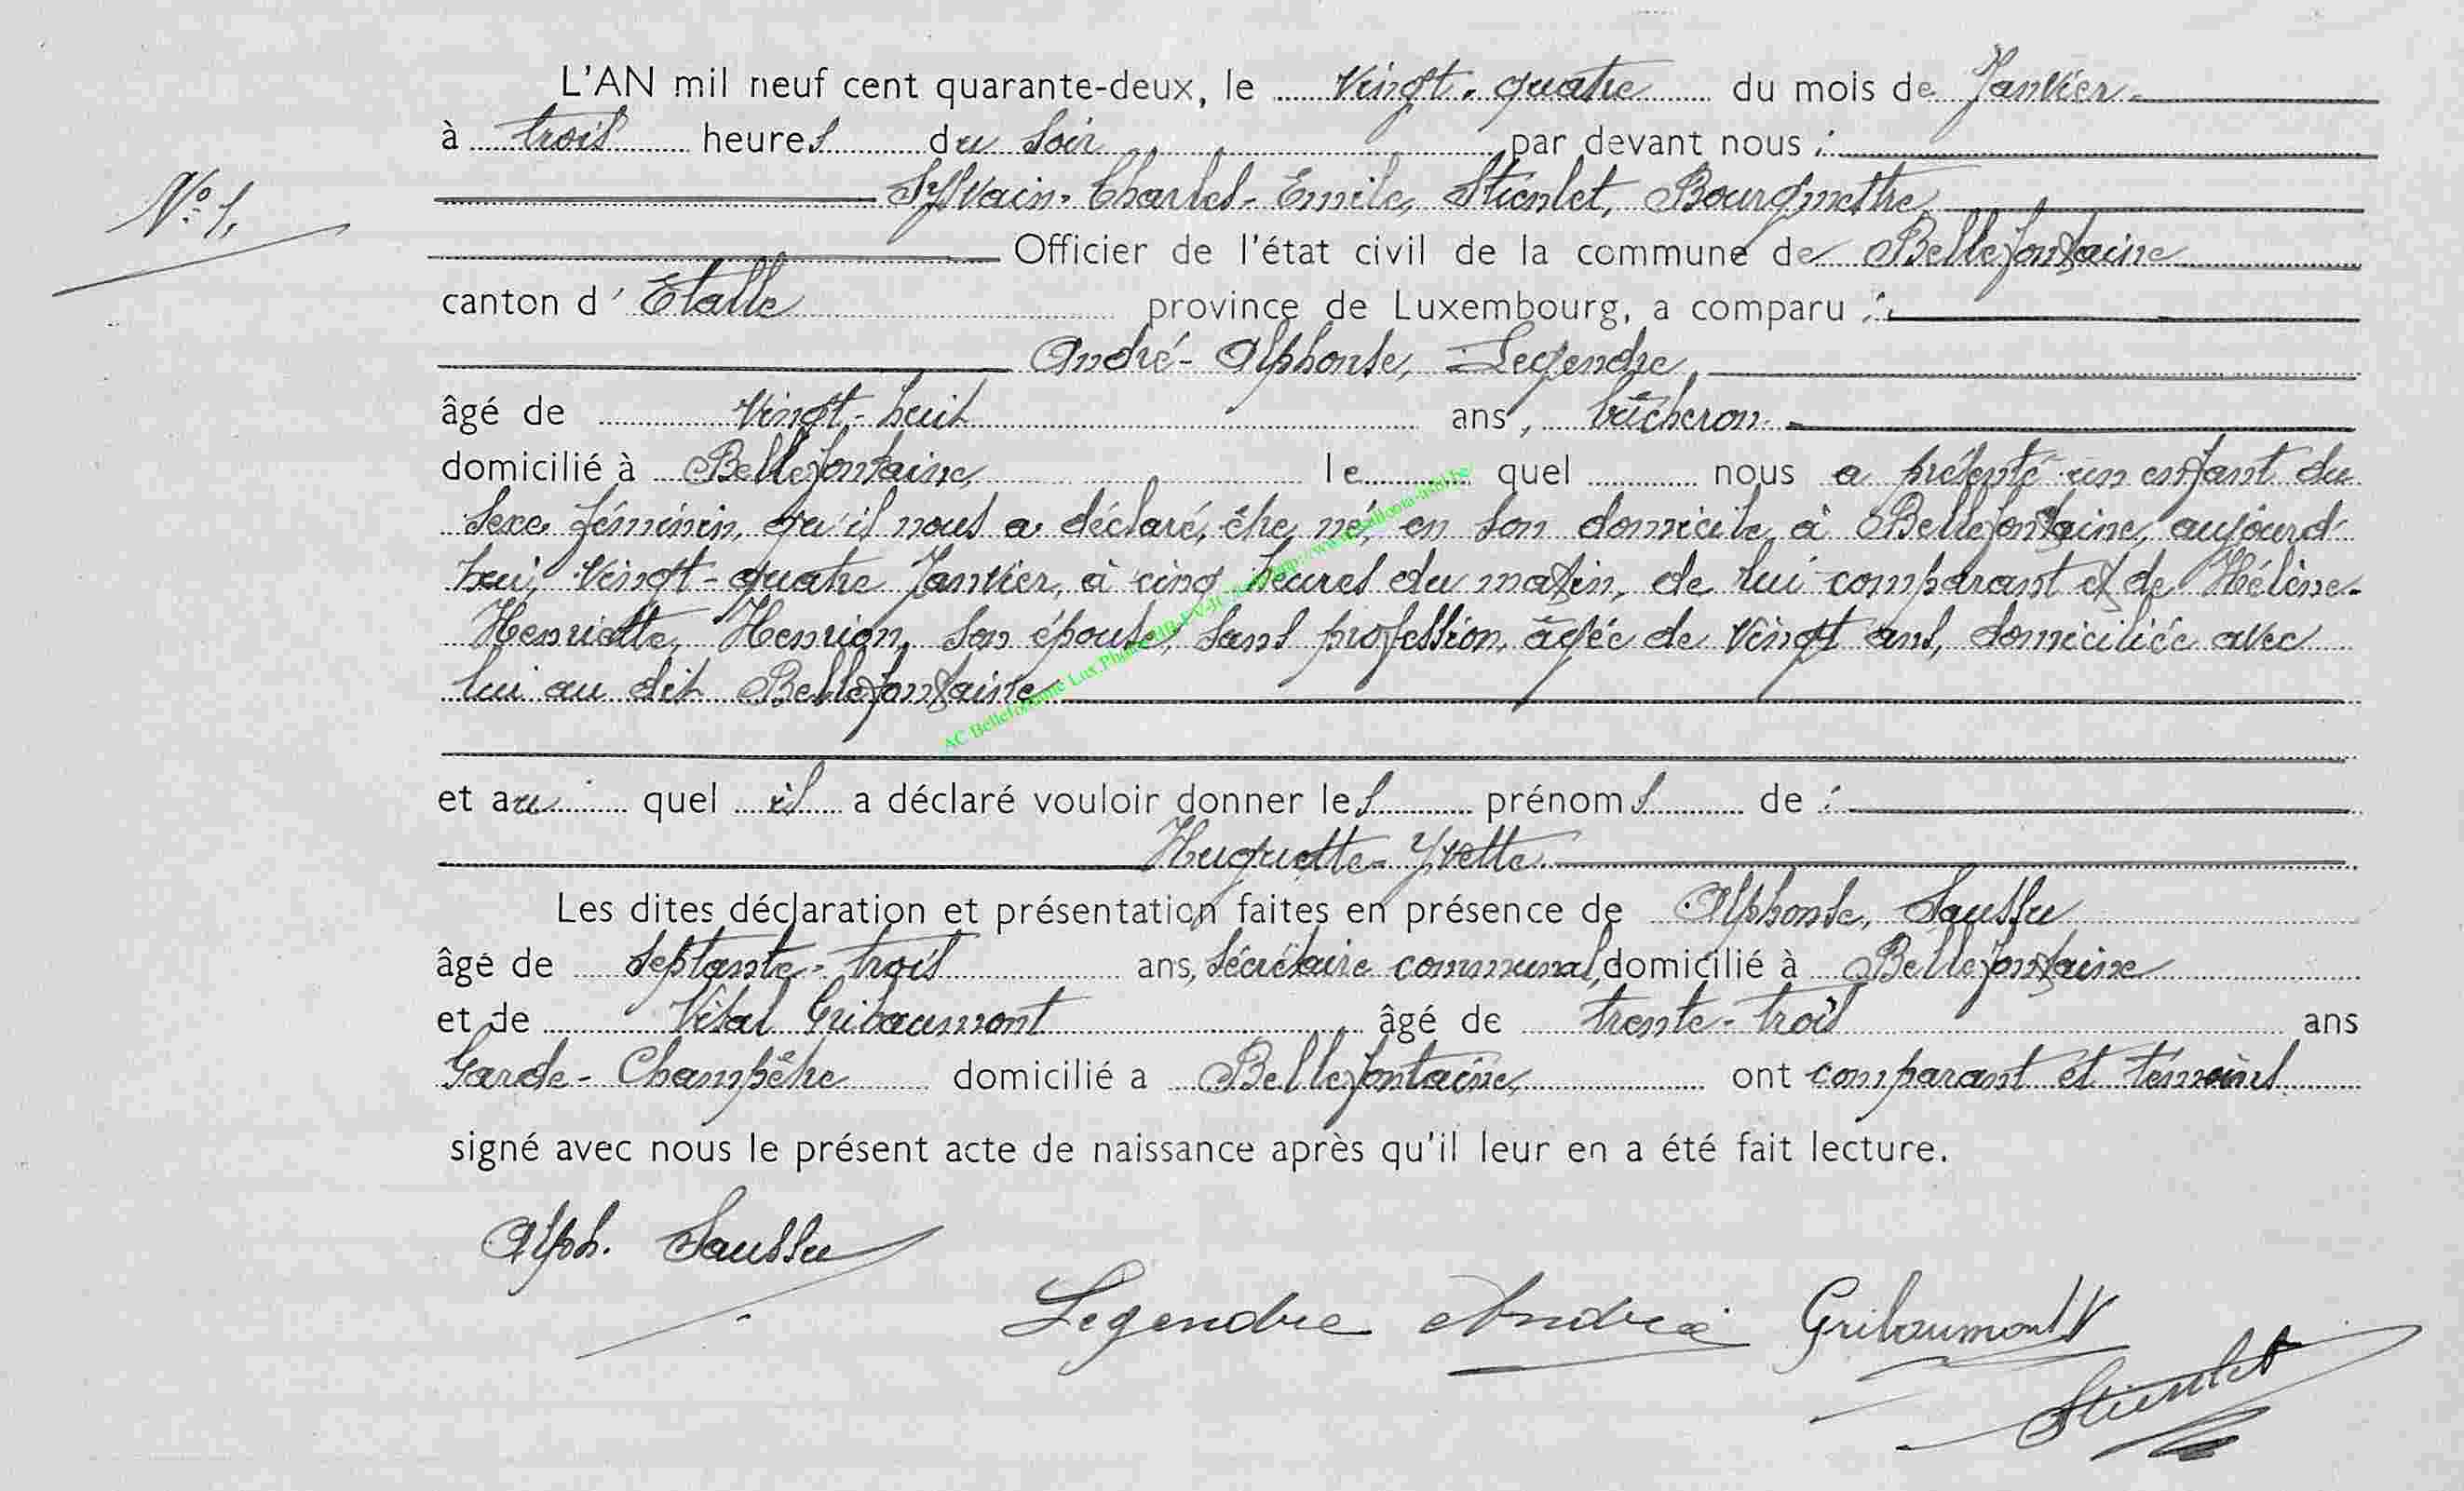 L'AN mil neuf cent quarante-deux, le vingt-quatre du mois de Janvier
à trois heures du soir par devant nous :
N° 1.
Sylvain-Charles-Emile, Stienlet, Bourgmestre
Officier de l'état civil de la commune de Bellefontaine
canton d'Etalle province de Luxembourg, a comparu :
André-Alphonse, Legendre
âgé de vingt-huit ans, bûcheron
domicilié à Bellefontaine, le quel nous a présenté un enfant du
sexe féminin, qu'il nous a déclaré, être né, en son domicile à Bellefontaine, aujourd
hui, vingt-quatre Janvier, à cinq heures du matin, de lui comparant et de Hélène-
Henriette, Henrion, son épouse, sans profession, âgée de vingt ans, domiciliée avec
lui au dit Bellefontaine
AC Bellefontaine Lux.
et au quel il a déclaré vouloir donner les prénoms de :
Huguette-Yvette
Les dites déclaration et présentation faites en présence de Alphonse, Saussu
âgé de septante-trois ans, secrétaire communal, domicilié à Bellefontaine
et de Vital Gribaumont âgé de trente-trois ans
Garde-Champêtre domicilié a Bellefontaine, ont comparant et témoins
signé avec nous le présent acte de naissance après qu'il leur en a été fait lecture.
Alph. Saussu
Legendre André Gribaumont V
Stienlet